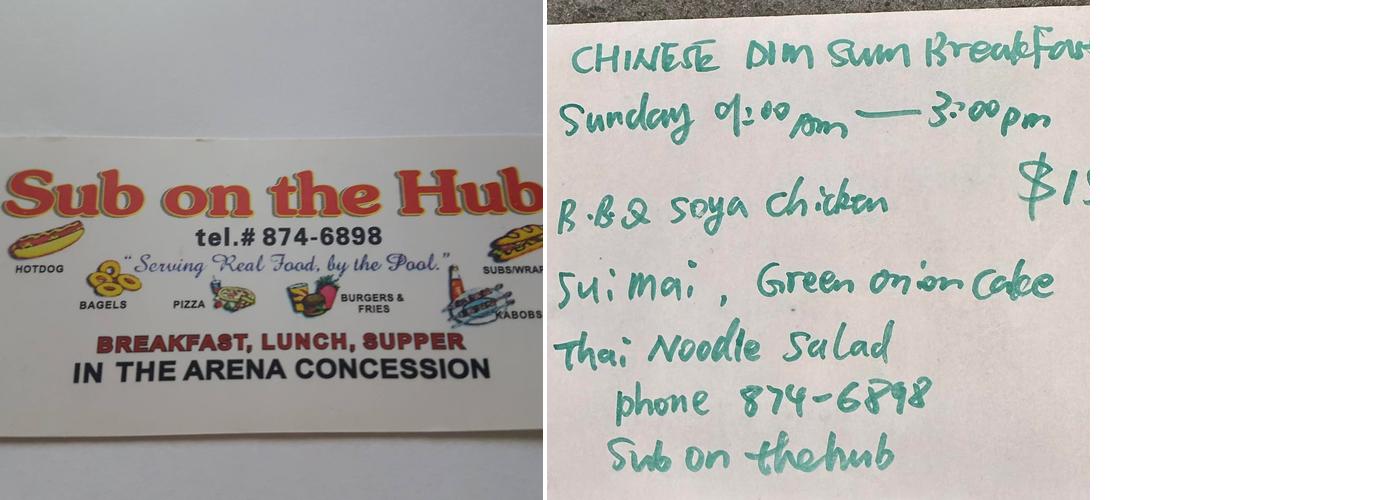 Sub on the Hub
tel.# 874-6898
"Serving Real Food, by the Pool."
HOTDOG
BAGELS
PIZZA
BURGERS &
FRIES
SUBS/WRAP
KABOBS
BREAKFAST, LUNCH, SUPPER
IN THE ARENA CONCESSION
CHINESE DIM SUM Breakfas
Sunday 9:00 am — 3:00pm
$15
B.B.Q soya chicken
Sui mai, Green onion cake
Thai Noodle Salad
phone 874-6898
Sub on the hub